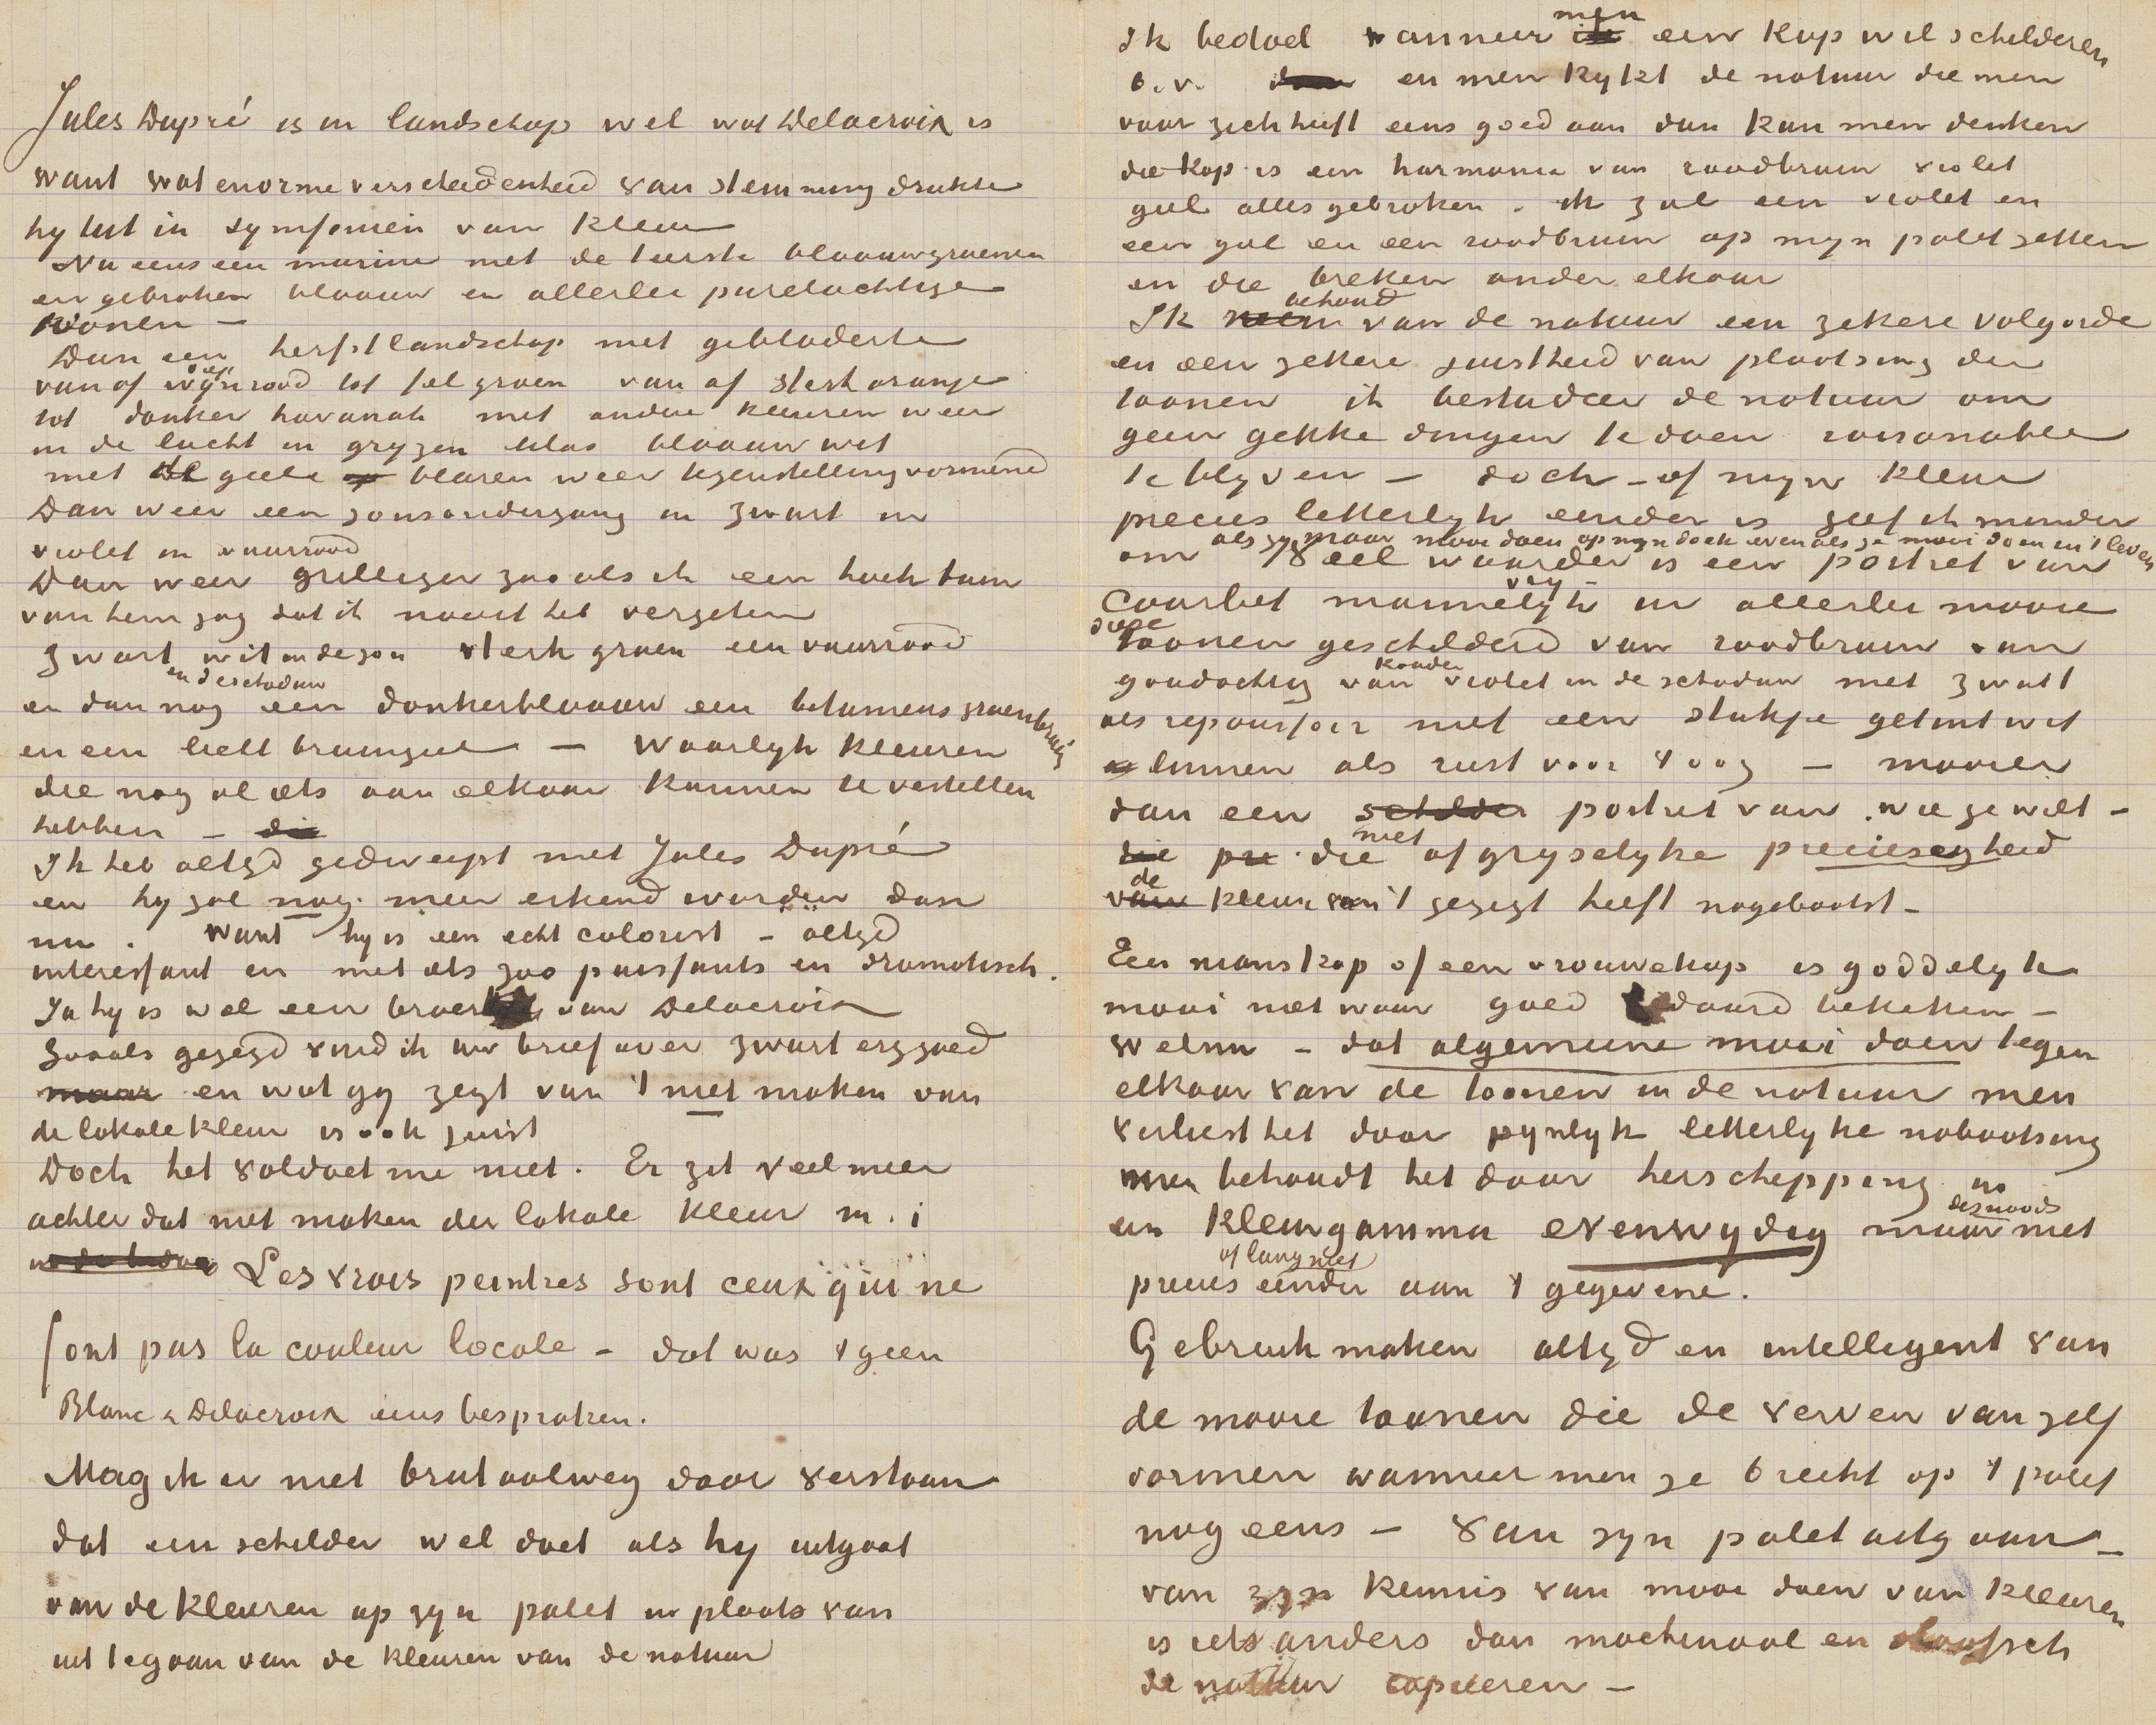 Jules Dupré is in landschap wel wat Delacroix is
want wat enorme verscheidenheid van stemming drukte
hy uit in symfonien van kleur
Nu eens een marine met de teerste blaauwgroenen
en gebroken blaauw en allerlei parelachtige
toonen –
Dan een herfstlandschap met gebladerte
van af diep wynrood tot fel groen van af sterk oranje
tot donker havanah met andere kleuren weer
in de lucht in gryzen lilas blaauw wit
met de geele blaren weer tegenstelling vormend
Dan weer een zonsondergang in zwart in
violet in vuurrood
Dan weer grilliger zooals ik een hoek tuin
van hem zag dat ik nooit heb vergeten
zwart in de schaduw wit in de zon sterk groen een vuurrood
en dan nog een donkerblaauw een bitumeus groenbruin
en een licht bruingeel – Waarlyk kleuren
die nog al iets aan elkaar kunnen te vertellen
hebben – die
Ik heb altyd gedweept met Jules Dupré
en hy zal nog meer erkend worden dan
nu . want hy is een echt colorist – altyd
interessant en met iets zoo puissants en dramatisch.
Ja hy is wel een broer van Delacroix
Zooals gezegd vind ik uw brief over zwart erg goed
maar en wat gy zegt van 't niet maken van
de lokale kleur is ook juist
Doch het voldoet me niet. Er zit veel meer
achter dat niet maken der lokale kleur m.i
Les vrais peintres sont ceux qui ne
font pas la couleur locale – dat was 't geen
Blanc & Delacroix eens bespraken.
Mag ik er niet brutaalweg door verstaan
dat een schilder wel doet als hy uitgaat
van de kleuren op zyn palet in plaats van
uit te gaan van de kleuren van de natuur
Ik bedoel wanneer men een kop wil schilderen
b.v. en men kykt de natuur die men
voor zich heeft eens goed aan dan kan men denken
die kop is een harmonie van roodbruin violet
geel alles gebroken . ik zal een violet en
een geel en een roodbruin op myn palet zetten
en die breken onder elkaar
Ik neem behoud van de natuur een zekere volgorde
en een zekere juistheid van plaatsing der
toonen ik bestudeer de natuur om
geen gekke dingen te doen raisonable
te blyven – doch – of myn kleur
precies letterlyk eender is geef ik minder
om als zy maar mooi doen op myn doek even als ze mooi doen in 't leven
Veel waarder is een portret van
Courbet mannelyk vry – in allerlei mooie
diepe toonen geschilderd van roodbruin van
goudachtig van kouder violet in de schaduw met zwart
als repoussoir met een stukje getint wit
linnen als rust voor 't oog – mooier
dan een schilder portret van wie ge wilt –
die niet afgryselyke preciesigheid
van de kleur van 't gezigt heeft nagebootst –
Een manskop of een vrouwekop is goddelyk
mooi niet waar goed bedaard bekeken –
Welnu – dat algemeene mooi doen tegen
elkaar van de toonen in de natuur men
verliest het door pynlyk letterlyke nabootsing
men behoudt het door herschepping in
een kleurgamma evenwydig maar desnoods niet
precies of lang niet eender aan 't gegevene.
Gebruik maken altyd en intelligent van
de mooie toonen die de verven van zelf
vormen wanneer men ze breekt op 't palet
nog eens – van zyn palet uitgaan –
van zyn kennis van mooi doen van kleuren
is iets anders dan machinaal en slaafsch
de natuur copieeren –